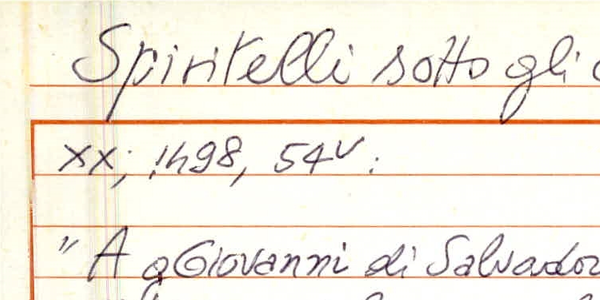 Spiritelli sotto gli
xx; 1498, 54v:
"A gGiovanni di Salvador